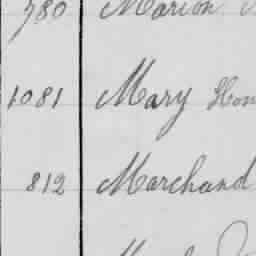 780 Marion
1081 Mary Hon
812 Marchand